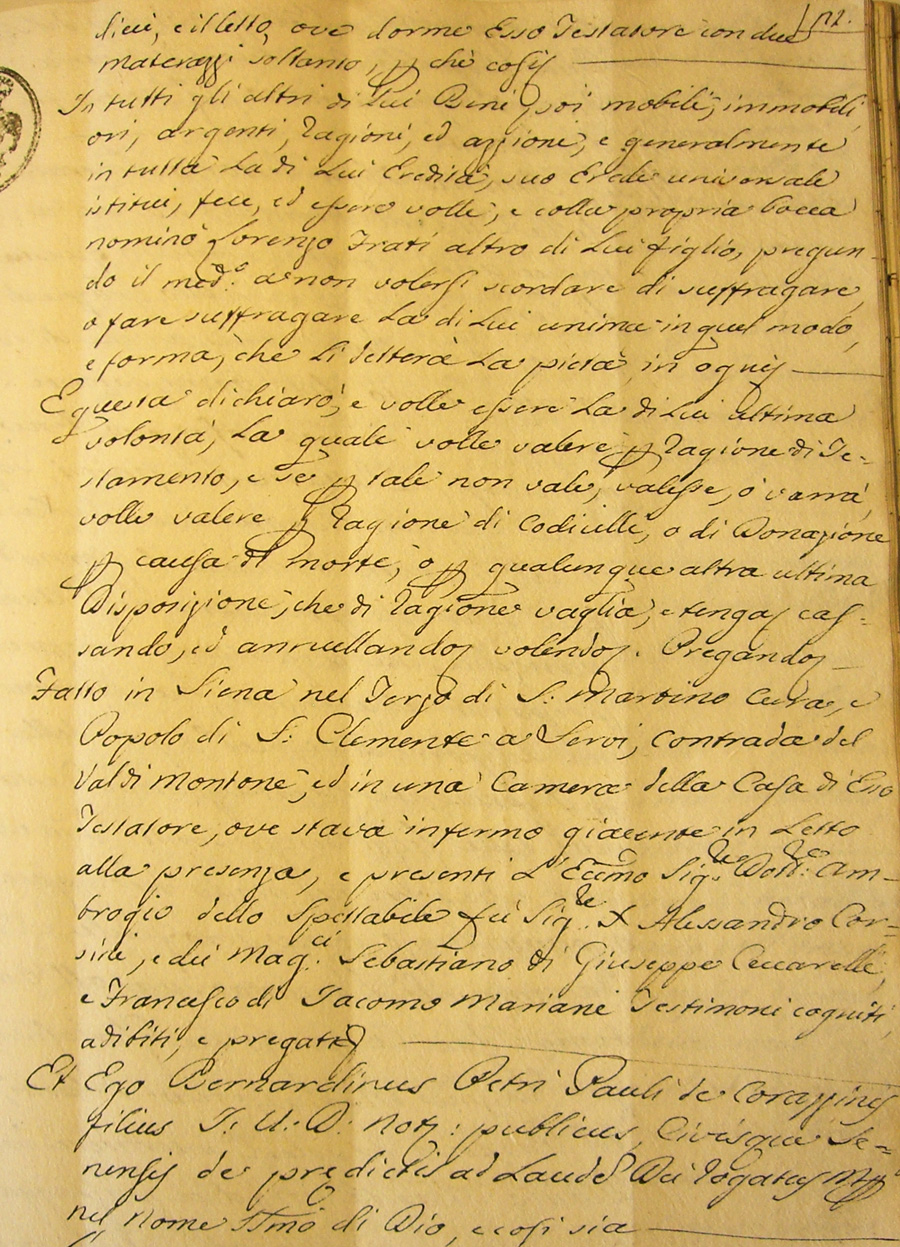 dieci, e il letto, ove dorme Esso Testatore con due
materazzi soltanto, p chè così
In tutti gli altri di Lui Beni poi mobili, immobili,
ori, argenti, ragioni, ed azzione, e generalmente
in tutta La di Lui Eredità, suo Erede universale
istituì, fece, ed essere volle, e colla propria bocca
nominò Lorenzo Frati altro di Lui figlio, pregan-
do il med.o a non volersi scordare di suffragare,
o fare suffragare La di Lui anima in quel modo,
e forma, che Li detterà La pietà, in ogni
E questa dichiarò, e volle essere La di Lui ultima
volontà, La quale volle valere p ragione di Te-
stamento, e se p tale non vale, valesse, ò varrà,
volle valere p ragione di Codicilli, o di Donazione
p causa di morte, o p qualunque altra ultima
Disposizione, che di ragione vaglia, e tenga cas-
sando, ed annullando volendo. Pregando
Fatto in Siena nel Terzo di S. Martino Cura, e
Popolo di S: Clemente a Servi, Contrada del
Valdimontone, ed in una Camera della Casa di Esso
Testatore, ove stava infermo giacente in Letto
alla presenza, e presenti L'Eccmo Sig.re Dott.re Am-
brogio dello Spettabile fù Sig.re Alessandro Cor-
sini, e dei Mag.ci Sebastiano di Giuseppe Ceccarelli,
e Francesco di Iacomo Mariani Testimoni cogniti,
adibiti, e pregati
Et Ego Bernardinus Petri Pauli de Corazzinis
filius I: U: D: Not: publicus, Civisque Se-
nensis de predictis ad Laude Dei rogatus
nel nome SSmo di Dio, e così sia